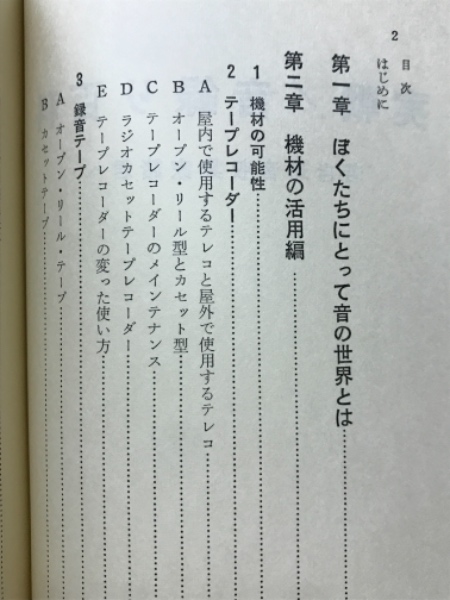 2
目次
はじめに
第一章 ぼくたちにとって音の世界とは
第二章 機材の活用編
1 機材の可能性
2 テープレコーダー
A 屋内で使用するテレコと屋外で使用するテレコ
B オープン・リール型とカセット型
C テープレコーダーのメインテナンス
D ラジオカセットテープレコーダー
E テープレコーダーの変った使い方
3 録音テープ
A オープン・リール・テープ
B カセットテープ